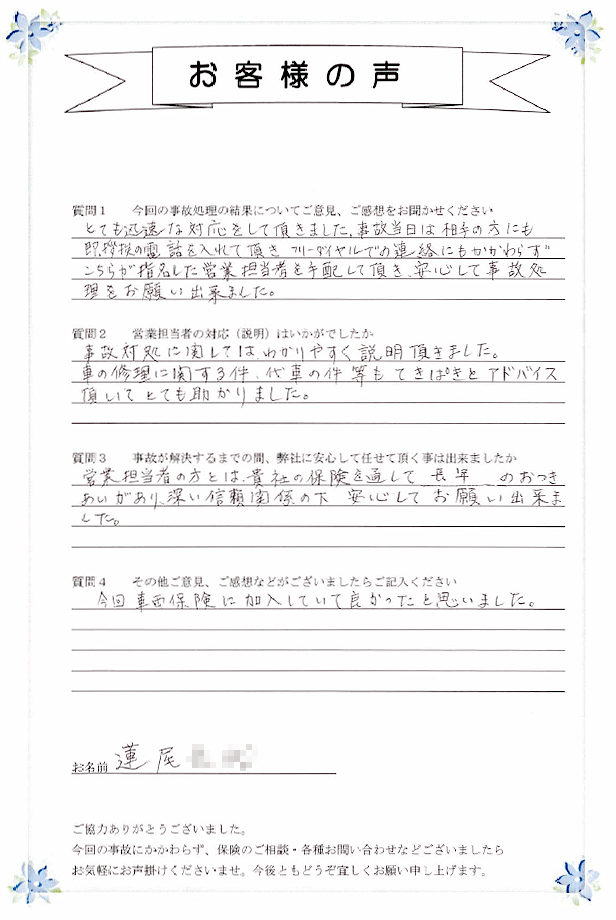 お客様の声
質問1 今回の事故処理の結果についてご意見、ご感想をお聞かせください
とても迅速な対応をして頂きました、事故当日は相手の方にも
即、挨拶の電話を入れて頂き フリーダイヤルでの連絡にもかかわらず
こちらが指名した営業担当者を手配して頂き、安心して事故処
理をお願い出来ました。
質問2 営業担当者の対応(説明)はいかがでしたか
事故対処に関しては、わかりやすく説明頂きました。
車の修理に関する件、代車の件等もてきぱきとアドバイス
頂いてとても助かりました。
質問3 事故が解決するまでの間、弊社に安心して任せて頂く事は出来ましたか
営業担当者の方とは、貴社の保険を通して 長年 のおつき
あいがあり、深い信頼関係の下 安心してお願い出来ま
した。
質問4 その他ご意見、ご感想などがございましたらご記入ください
今回車両保険に加入していて良かったと思いました。
お名前 蓮尾
ご協力ありがとうございました。
今回の事故にかかわらず、保険のご相談・各種お問い合わせなどございましたら
お気軽にお声掛けくださいませ。今後ともどうぞ宜しくお願い申し上げます。